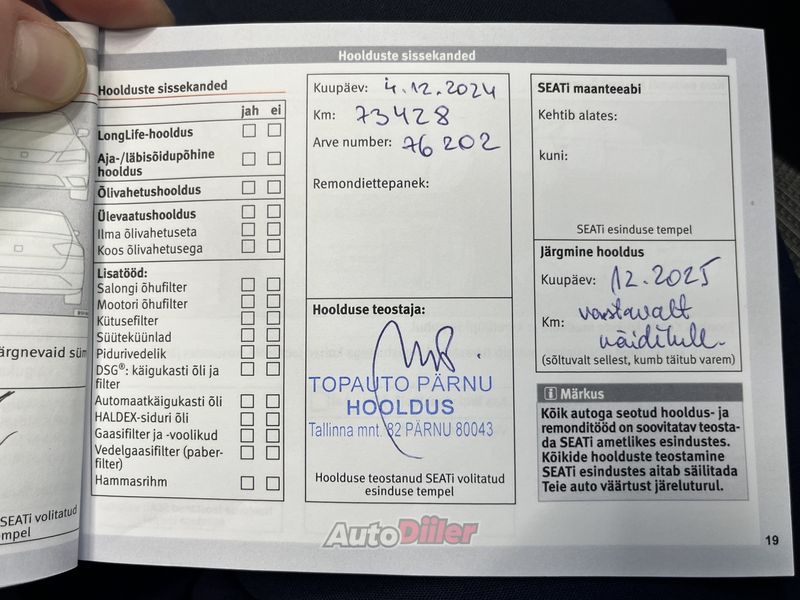 Hoolduste sissekanded
Hoolduste sissekanded
jah ei
LongLife-hooldus
Aja-/läbisõidupõhine
hooldus
Õlivahetushooldus
Ülevaatushooldus
Ilma õlivahetuseta
Koos õlivahetusega
Lisatööd:
Salongi õhufilter
Mootori õhufilter
Kütusefilter
Süüteküünlad
Pidurivedelik
DSG®: käigukasti õli ja
filter
Automaatkäigukasti õli
HALDEX-siduri õli
Gaasifilter ja -voolikud
Vedelgaasifilter (paber-
filter)
Hammasrihm
Kuupäev: 4.12.2024
Km: 73428
Arve number: 76202
Remondiettepanek:
Hoolduse teostaja:
TOPAUTO PÄRNU
HOOLDUS
Tallinna mnt. 82 PÄRNU 80043
Hoolduse teostanud SEATi volitatud
esinduse tempel
SEATi maanteeabi
Kehtib alates:
kuni:
SEATi esinduse tempel
Järgmine hooldus
Kuupäev: 12.2025
Km: vastavalt
näidikule.
(sõltuvalt sellest, kumb täitub varem)
i Märkus
Kõik autoga seotud hooldus- ja
remonditööd on soovitatav teosta-
da SEATi ametlikes esindustes.
Kõikide hoolduste teostamine
SEATi esindustes aitab säilitada
Teie auto väärtust järelturul.
19
ärgnevaid süm
SEATi volitatud
empel
AutoDiiler